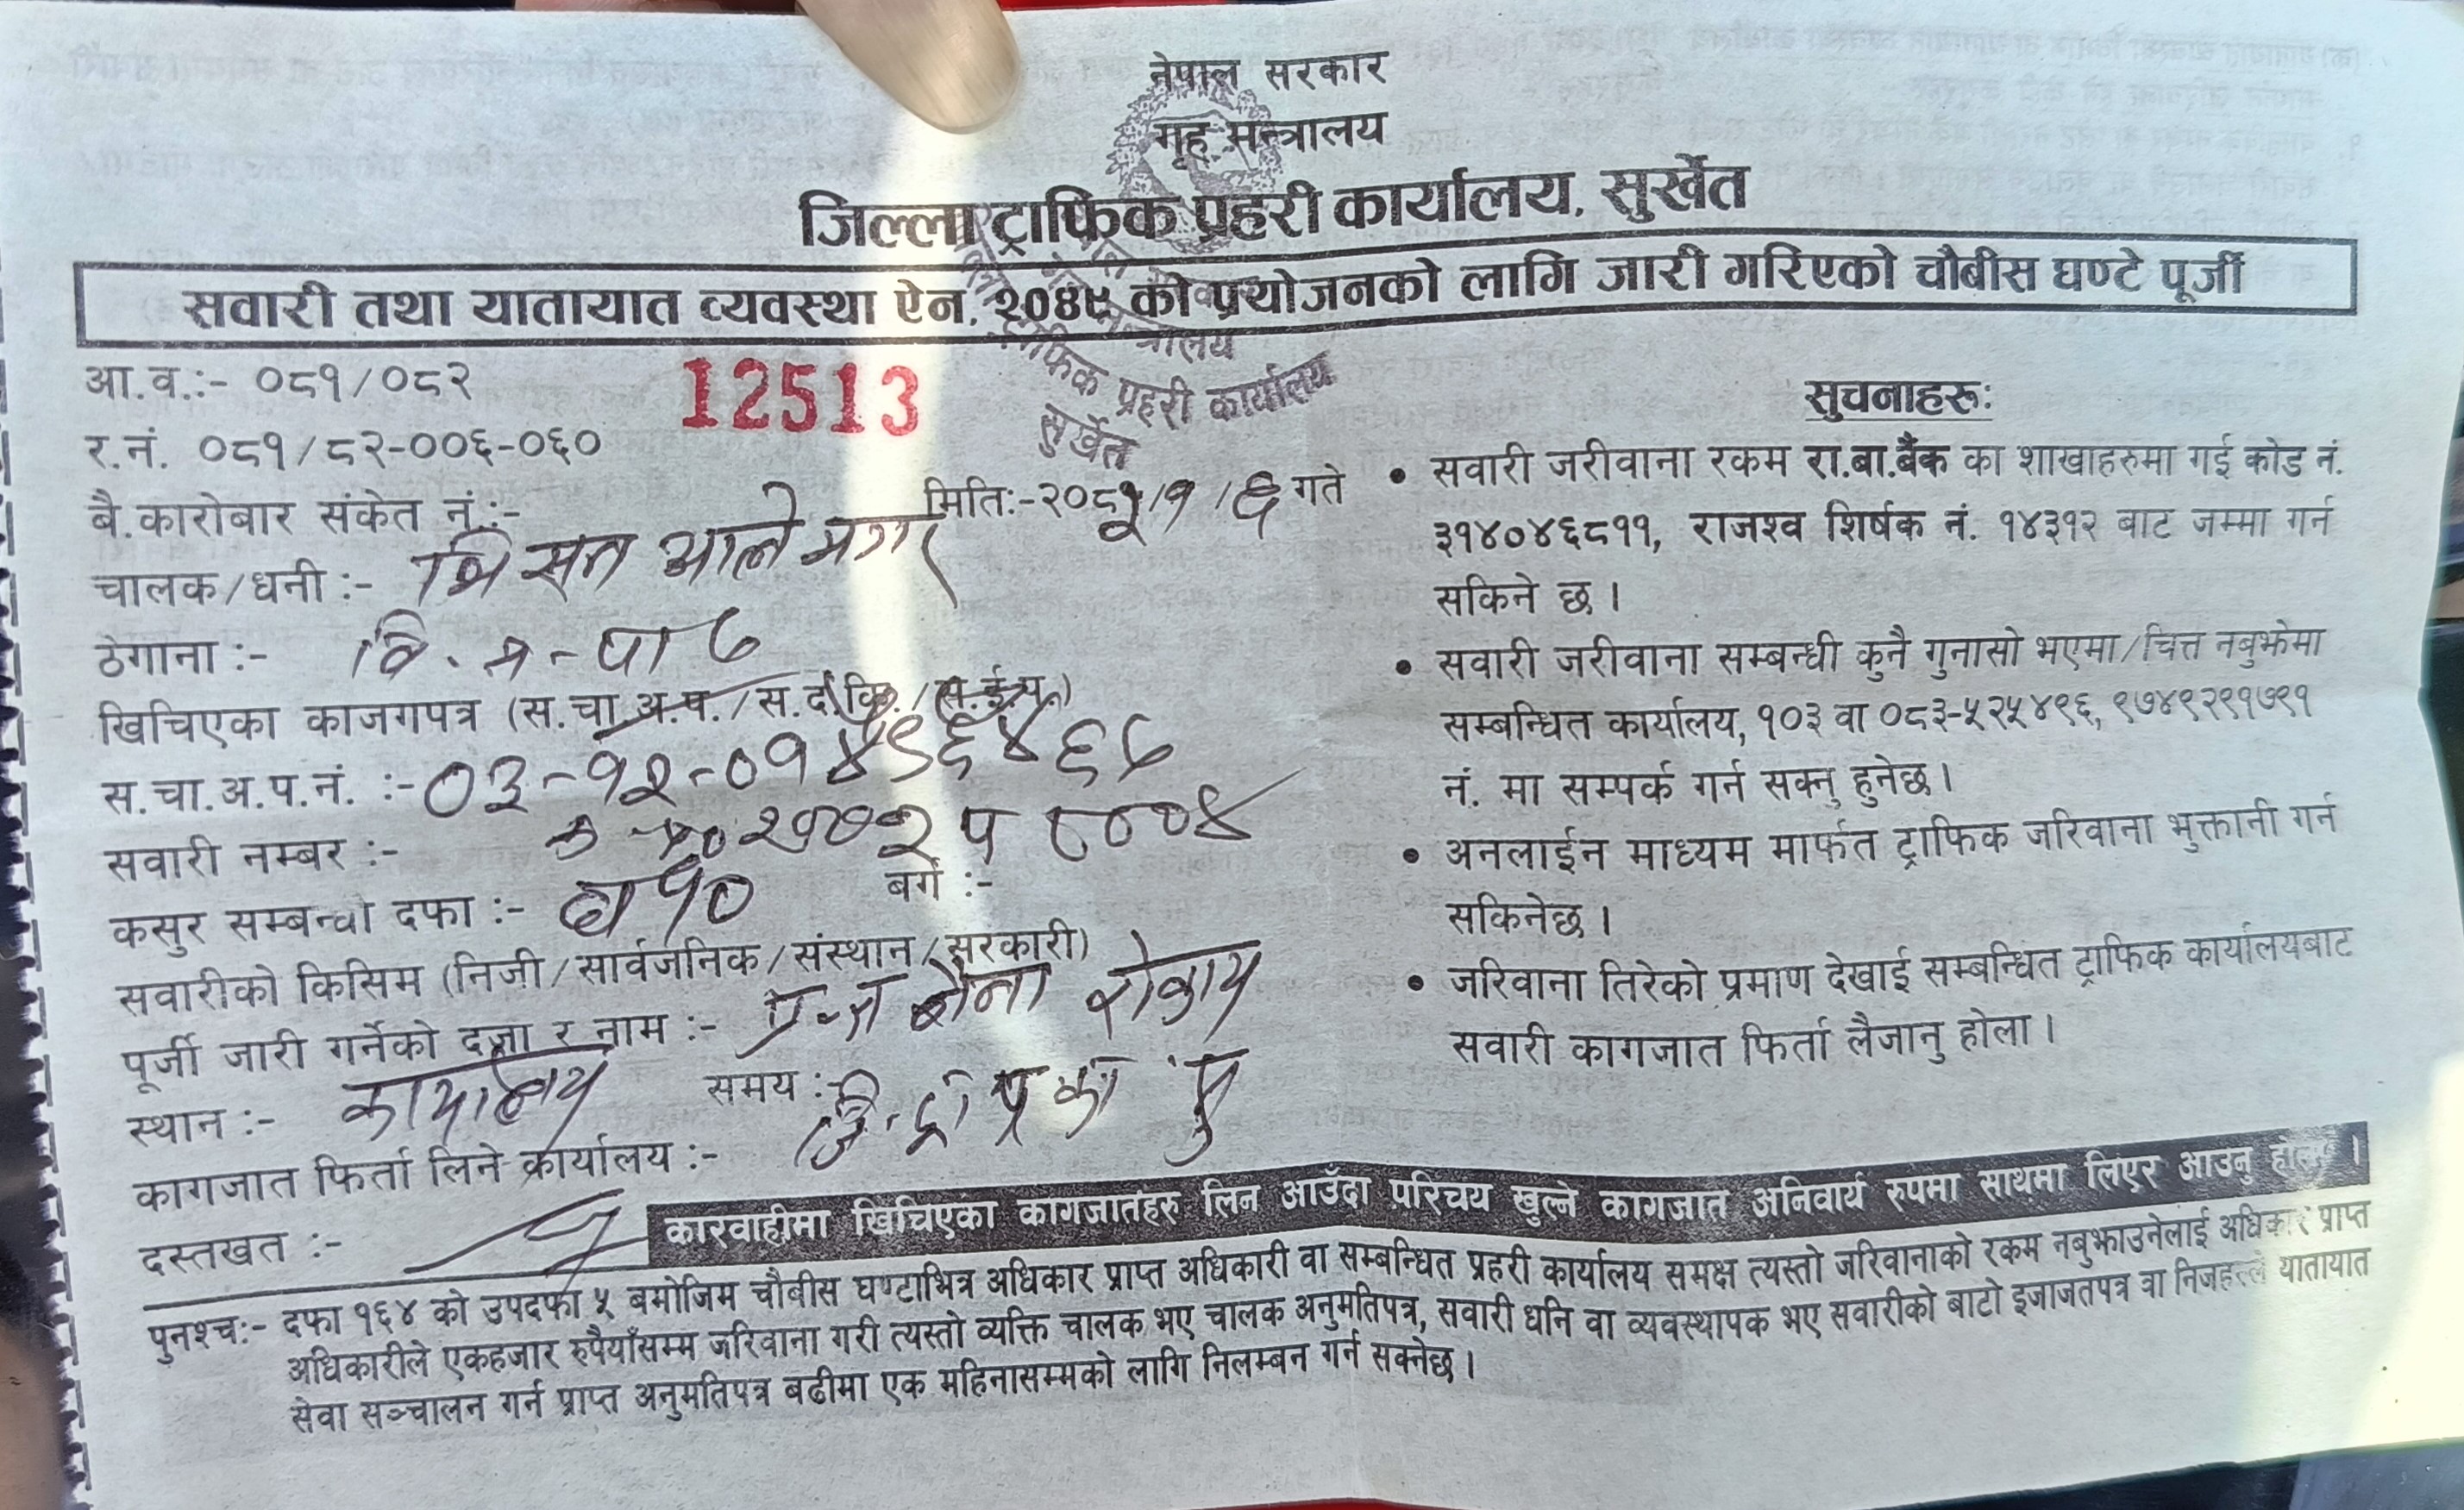 नेपाल सरकार
गृह मन्त्रालय
जिल्ला ट्राफिक प्रहरी कार्यालय, सुर्खेत
सवारी तथा यातायात व्यवस्था ऐन, २०४९ को प्रयोजनको लागि जारी गरिएको चौबीस घण्टे पूर्जी
आ.व.:- ०८१/०८२
12513
ट्राफिक प्रहरी कार्यालय
सुर्खेत
र.नं. ०८१/८२-००६-०६०
बै.कारोबार संकेत नं.:-
मितिः-२०८२/१/६ गते
चालक/धनी :- आले मगर
ठेगाना :- वि.न-पा ८
खिचिएका काजगपत्र (स.चा.अ.प./स.द.कि./स.ई.प्र.)
स.चा.अ.प.नं. :- ०३-१२-०१४९६४६८
सवारी नम्बर :- प ८००४
कसुर सम्बन्धी दफा :- घ १०
बर्ग :-
सवारीको किसिम (निजी/सार्वजनिक/संस्थान/सरकारी)
पूर्जी जारी गर्नेको दर्जा र नाम :- प्र.ज
स्थान :- कार्यालय
समय :-
कागजात फिर्ता लिने कार्यालय :- जि.ट्रा प्र का सु
दस्तखत :-
सुचनाहरुः
• सवारी जरीवाना रकम रा.बा.बैंक का शाखाहरुमा गई कोड नं.
३१४०४६८११, राजश्व शिर्षक नं. १४३१२ बाट जम्मा गर्न
सकिने छ ।
• सवारी जरीवाना सम्बन्धी कुनै गुनासो भएमा/चित्त नबुझेमा
सम्बन्धित कार्यालय, १०३ वा ०८३-५२५४९६, ९७४९२९१७९१
नं. मा सम्पर्क गर्न सक्नु हुनेछ ।
• अनलाईन माध्यम मार्फत ट्राफिक जरिवाना भुक्तानी गर्न
सकिनेछ ।
• जरिवाना तिरेको प्रमाण देखाई सम्बन्धित ट्राफिक कार्यालयबाट
सवारी कागजात फिर्ता लैजानु होला ।
कारवाहीमा खिचिएका कागजातहरु लिन आउँदा परिचय खुल्ने कागजात अनिवार्य रुपमा साथमा लिएर आउनु होला ।
पुनश्चः- दफा १६४ को उपदफा ५ बमोजिम चौबीस घण्टाभित्र अधिकार प्राप्त अधिकारी वा सम्बन्धित प्रहरी कार्यालय समक्ष त्यस्तो जरिवानाको रकम नबुझाउनेलाई अधिकार प्राप्त
अधिकारीले एकहजार रुपैयाँसम्म जरिवाना गरी त्यस्तो व्यक्ति चालक भए चालक अनुमतिपत्र, सवारी धनि वा व्यवस्थापक भए सवारीको बाटो इजाजतपत्र वा निजहरुले यातायात
सेवा सञ्चालन गर्न प्राप्त अनुमतिपत्र बढीमा एक महिनासम्मको लागि निलम्बन गर्न सक्नेछ ।